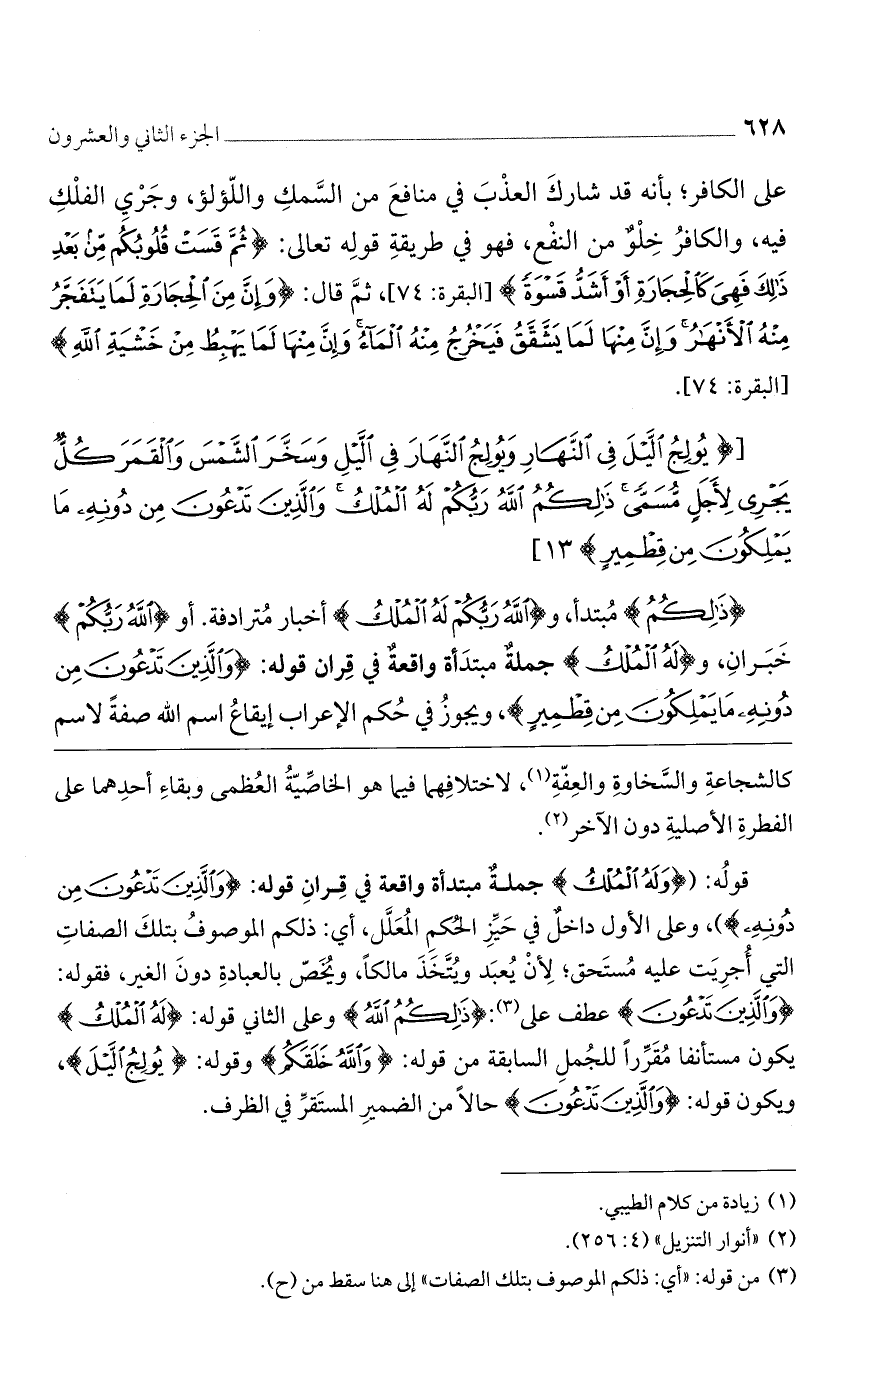 ٦٢٨ ــــــــــــــــ الجزء الثاني والعشرون
على الكافر؛ بأنه قد شاركَ العذْبَ في منافعَ من السَّمكِ واللّؤلؤ، وجَرْيِ الفلْكِ
فيه، والكافرُ خِلْوٌ من النفْع، فهو في طريقةِ قولِه تعالى: ﴿ثُمَّ قَسَتْ قُلُوبُكُم مِّنۢ بَعْدِ
ذَٰلِكَ فَهِيَ كَٱلْحِجَارَةِ أَوْ أَشَدُّ قَسْوَةً﴾ [البقرة: ٧٤]، ثمَّ قال: ﴿وَإِنَّ مِنَ ٱلْحِجَارَةِ لَمَا يَتَفَجَّرُ
مِنْهُ ٱلْأَنْهَٰرُ ۚ وَإِنَّ مِنْهَا لَمَا يَشَّقَّقُ فَيَخْرُجُ مِنْهُ ٱلْمَآءُ ۚ وَإِنَّ مِنْهَا لَمَا يَهْبِطُ مِنْ خَشْيَةِ ٱللَّهِ﴾
[البقرة: ٧٤].
[﴿يُولِجُ ٱلَّيْلَ فِى ٱلنَّهَارِ وَيُولِجُ ٱلنَّهَارَ فِى ٱلَّيْلِ وَسَخَّرَ ٱلشَّمْسَ وَٱلْقَمَرَ كُلٌّ
يَجْرِى لِأَجَلٍ مُّسَمًّى ۚ ذَٰلِكُمُ ٱللَّهُ رَبُّكُمْ لَهُ ٱلْمُلْكُ ۚ وَٱلَّذِينَ تَدْعُونَ مِن دُونِهِۦ مَا
يَمْلِكُونَ مِن قِطْمِيرٍ﴾ ١٣]
﴿ذَٰلِكُمُ﴾ مُبتدأ، و﴿ٱللَّهُ رَبُّكُمْ لَهُ ٱلْمُلْكُ﴾ أخبار مُترادفة. أو ﴿ٱللَّهُ رَبُّكُمْ﴾
خَبَرانِ، و﴿لَهُ ٱلْمُلْكُ﴾ جملةٌ مبتدَأة واقعةٌ في قِران قوله: ﴿وَٱلَّذِينَ تَدْعُونَ مِن
دُونِهِۦ مَا يَمْلِكُونَ مِن قِطْمِيرٍ﴾، ويجوزُ في حُكم الإعراب إيقاعُ اسم الله صفةً لاسم
كالشجاعةِ والسَّخاوةِ والعِفّةِ(١)، لاختلافِهما فيما هو الخاصِّيّةُ العُظمى وبقاءِ أحدِهما على
الفطرةِ الأصليةِ دون الآخر(٢).
قولُه: (﴿وَلَهُ ٱلْمُلْكُ﴾ جملةٌ مبتدأة واقعة في قِرانِ قوله: ﴿وَٱلَّذِينَ تَدْعُونَ مِن
دُونِهِۦ﴾)، وعلى الأول داخلٌ في حَيِّزِ الحُكمِ المُعَلَّل، أي: ذلكم الموصوفُ بتلكَ الصفاتِ
التي أُجرِيَت عليه مُستَحق؛ لِأنْ يُعبَد ويُتَّخَذَ مالكاً، ويُخَصّ بالعبادةِ دونَ الغير، فقوله:
﴿وَٱلَّذِينَ تَدْعُونَ﴾ عطف على(٣): ﴿ذَٰلِكُمُ ٱللَّهُ﴾ وعلى الثاني قوله: ﴿لَهُ ٱلْمُلْكُ﴾
يكون مستأنفا مُقَرِّراً للجُملِ السابقة من قوله: ﴿وَٱللَّهُ خَلَقَكُم﴾ وقوله: ﴿يُولِجُ ٱلَّيْلَ﴾،
ويكون قوله: ﴿وَٱلَّذِينَ تَدْعُونَ﴾ حالاً من الضميرِ المستَقرِّ في الظرف.
(١) زيادة من كلام الطيبي.
(٢) «أنوار التنزيل» (٤: ٢٥٦).
(٣) من قوله: «أي: ذلكم الموصوف بتلك الصفات» إلى هنا سقط من (ح).